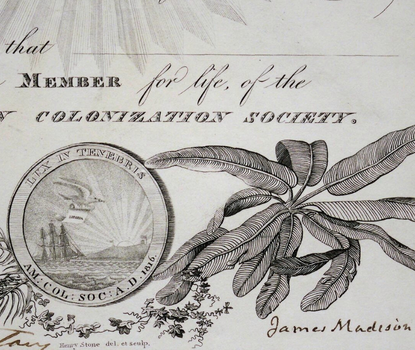 that
MEMBER for life, of the
N COLONIZATION SOCIETY.
LUX IN TENEBRIS
AM: COL: SOC: A.D. 1816
James Madison
Clay
Henry Stone del. et sculp.